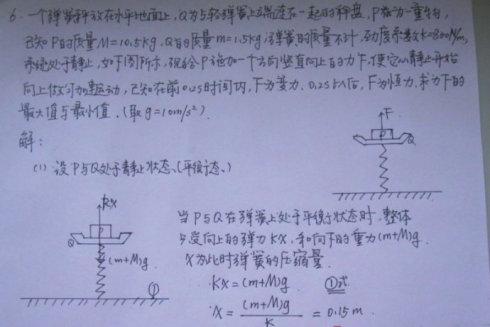 6. 一个弹簧秤放在水平地面上,Q为与轻弹簧上端连在一起的秤盘,P为一重物,
已知P的质量M=10.5kg,Q的质量m=1.5kg,弹簧的质量不计,劲度系数k=800N/m,
系统处于静止,如下图所示,现给P施加一个方向竖直向上的力F,使它从静止开始
向上做匀加速运动,已知在前0.2s时间内,F为变力,0.2s以后,F为恒力,求力F的
最大值与最小值.(取g=10m/s²).
解:
F
P
Q
(1) 设P与Q处于静止状态(平衡态.)
kx
Q
(m+M)g
①
当P与Q在弹簧上处于平衡状态时,整体
受向上的弹力kx,和向下的重力(m+M)g.
x为此时弹簧的压缩量.
kx=(m+M)g ①式
x=(m+M)g/K=0.15m.